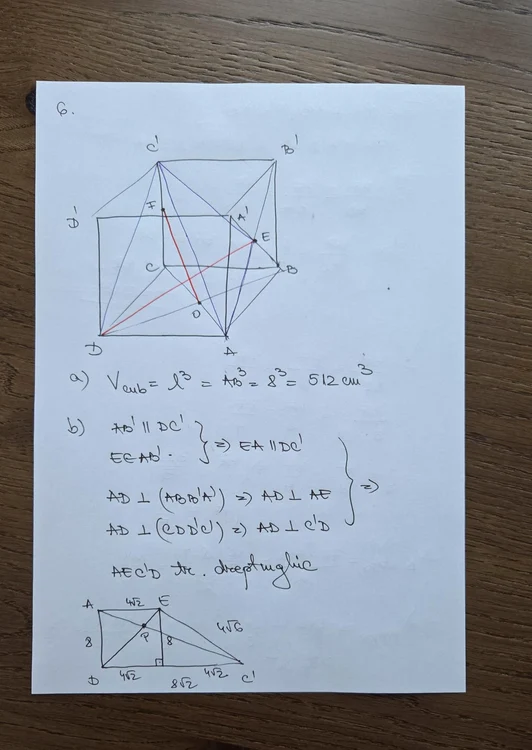 6.
C' B'
D' F A' E
C B
O
D A
a) Vcub = l³ = AB³ = 8³ = 512 cm³
b) AB' || DC'
E∈AB'. } ⇒ EA || DC'
AD ⊥ (ABB'A') ⇒ AD ⊥ AE
AD ⊥ (CDD'C') ⇒ AD ⊥ C'D } ⇒
AEC'D tr. dreptunghic
A 4√2 E
8 P 8 4√6
D 4√2 4√2 C'
8√2